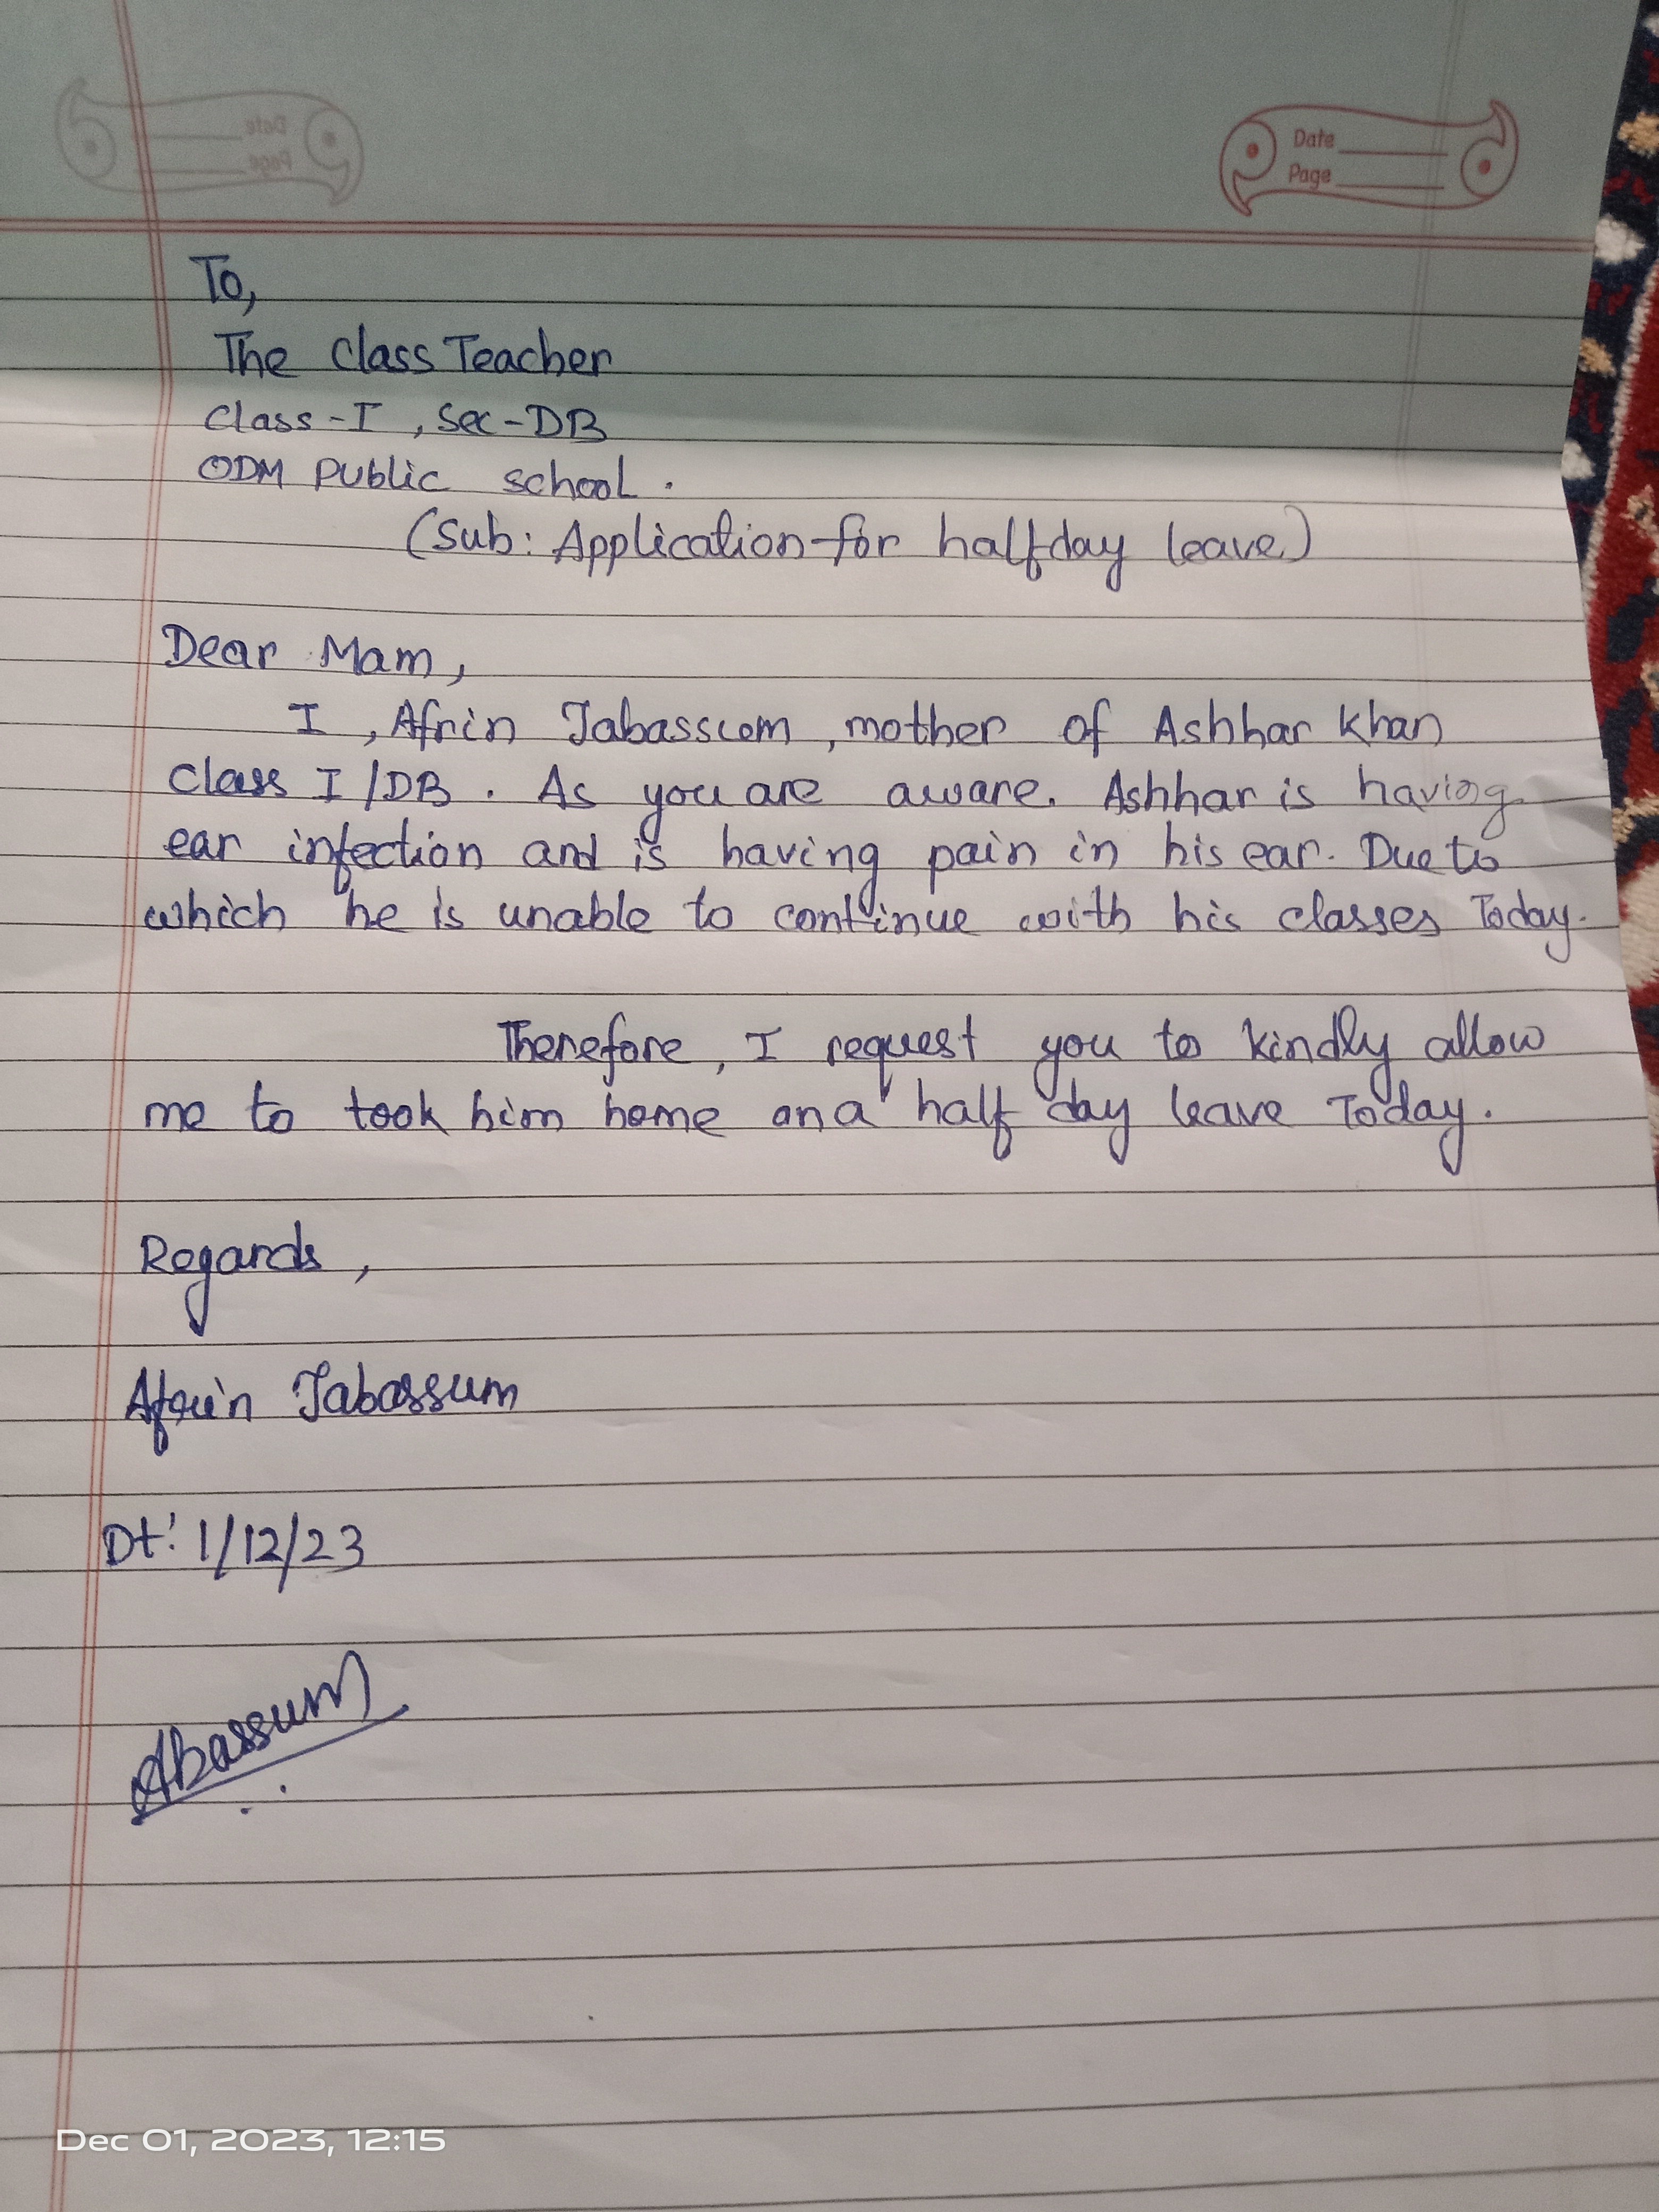 Date
Page
To,
The Class Teacher
Class-I, Sec-DB
ODM Public school.
(Sub: Application for half day leave)
Dear Mam,
I, Afrin Tabassum, mother of Ashhar Khan
Class I/DB. As you are aware. Ashhar is having
ear infection and is having pain in his ear. Due to
which he is unable to continue with his classes Today.
Therefore, I request you to kindly allow
me to took him home on a half day leave Today.
Regards,
Afrin Tabassum
Dt: 1/12/23
Abassum
Dec 01, 2023, 12:15